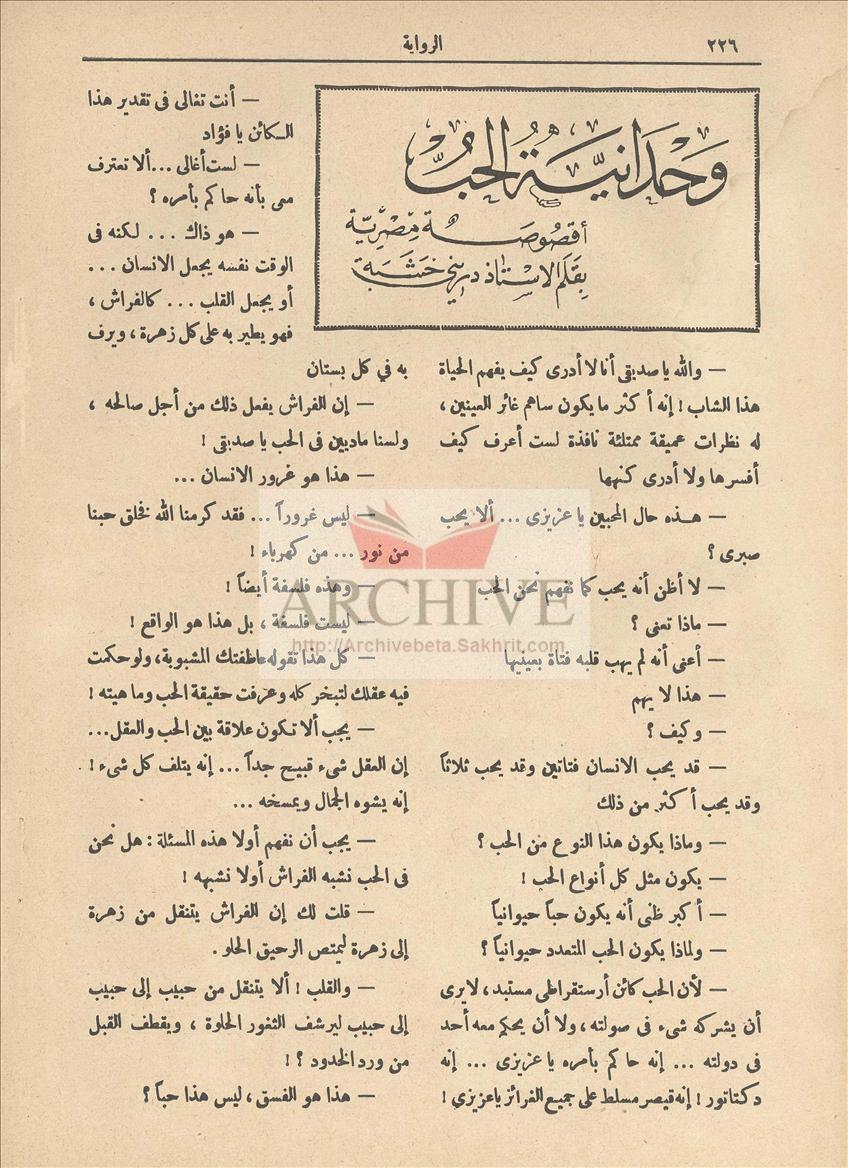 ٢٢٦
الرواية
وَحْدَانِيَّةُ الحُبِّ
أقصُوصَة مِصْرِيَّة
بِقَلَم الاسْتاذ دريني خَشَبَة
— والله يا صديقى أنا لا أدرى كيف يفهم الحياة
هذا الشاب ! إنه أكثر ما يكون ساهم غائر العينين ،
له نظرات عميقة ممتلئة نافذة لست أعرف كيف
أفسرها ولا أدرى كنهها
— هذه حال المحبين يا عزيزى ... ألا يحب
صبرى ؟
— لا أظن أنه يحب كما نفهم نحن الحب
— ماذا تعنى ؟
— أعنى أنه لم يهب قلبه فتاة بعينها
— هذا لا يهم
— وكيف ؟
— قد يحب الانسان فتاتين وقد يحب ثلاثاً
وقد يحب أكثر من ذلك
— وماذا يكون هذا النوع من الحب ؟
— يكون مثل كل أنواع الحب !
— أكبر ظنى أنه يكون حباً حيوانياً
— ولماذا يكون الحب المتعدد حيوانياً ؟
— لأن الحب كائن أرستقراطى مستبد ، لا يرى
أن يشركه شىء فى صولته ، ولا أن يحكم معه أحد
فى دولته ... إنه حاكم بأمره يا عزيزى ... إنه
دكتاتور ! إنه قيصر مسلط على جميع الغرائز يا عزيزي !
— أنت تغالى فى تقدير هذا
الكائن يا فؤاد
— لست أغالى ... ألا تعترف
معى بأنه حاكم بأمره ؟
— هو ذاك ... لكنه فى
الوقت نفسه يجعل الانسان ...
أو يجعل القلب ... كالفراش ،
فهو يطير به على كل زهرة ، ويرف
به في كل بستان
— إن الفراش يفعل ذلك من أجل صالحه ،
ولسنا ماديين فى الحب يا صديقى !
— هذا هو غرور الانسان ...
— ليس غروراً ... فقد كرمنا الله فخلق حبنا
من نور ... من كهرباء !
— وهذه فلسفة أيضاً !
— ليست فلسفة ، بل هذا هو الواقع !
— كل هذا تقوله عاطفتك المشبوبة ، ولو حكمت
فيه عقلك لتبخر كله وعرفت حقيقة الحب وما هيته !
— يجب ألا تكون علاقة بين الحب والعقل ...
إن العقل شىء قبيح جداً ... إنه يتلف كل شىء !
إنه يشوه الجمال ويمسخه ...
— يجب أن نفهم أولا هذه المسئلة : هل نحن
فى الحب نشبه الفراش أولا نشبهه !
— قلت لك إن الفراش يتنقل من زهرة
إلى زهرة ليمتص الرحيق الحلو .
— والقلب ! ألا يتنقل من حبيب إلى حبيب
إلى حبيب ليرشف الثغور الحلوة ، ويقطف القبل
من ورد الخدود ؟ !
— هذا هو الفسق ، ليس هذا حباً ؟
ARCHIVE
http://Archivebeta.Sakhrit.com